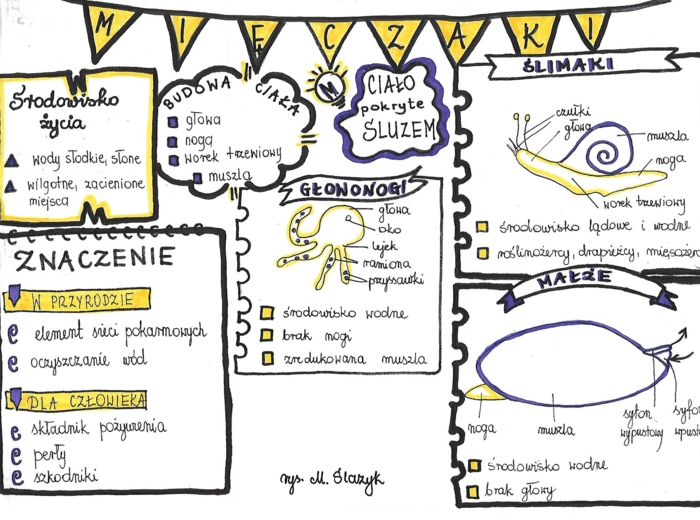 MIĘCZAKI
Środowisko
życia
wody słodkie, słone
wilgotne, zacienione
miejsca
BUDOWA CIAŁA
głowa
noga
worek trzewiowy
muszla
M
CIAŁO
pokryte
ŚLUZEM
ŚLIMAKI
czułki
głowa
muszla
noga
worek trzewiowy
środowisko lądowe i wodne
roślinożercy, drapieżcy,
GŁOWONOGI
głowa
oko
lejek
ramiona
przyssawki
środowisko wodne
brak nogi
zredukowana muszla
ZNACZENIE
W PRZYRODZIE
element sieci pokarmowych
oczyszczanie wód
DLA CZŁOWIEKA
składnik pożywienia
perły
szkodniki
MAŁŻE
noga
muszla
syfon
wypustowy
syfon
środowisko wodne
brak głowy
rys. M. Ślazyk